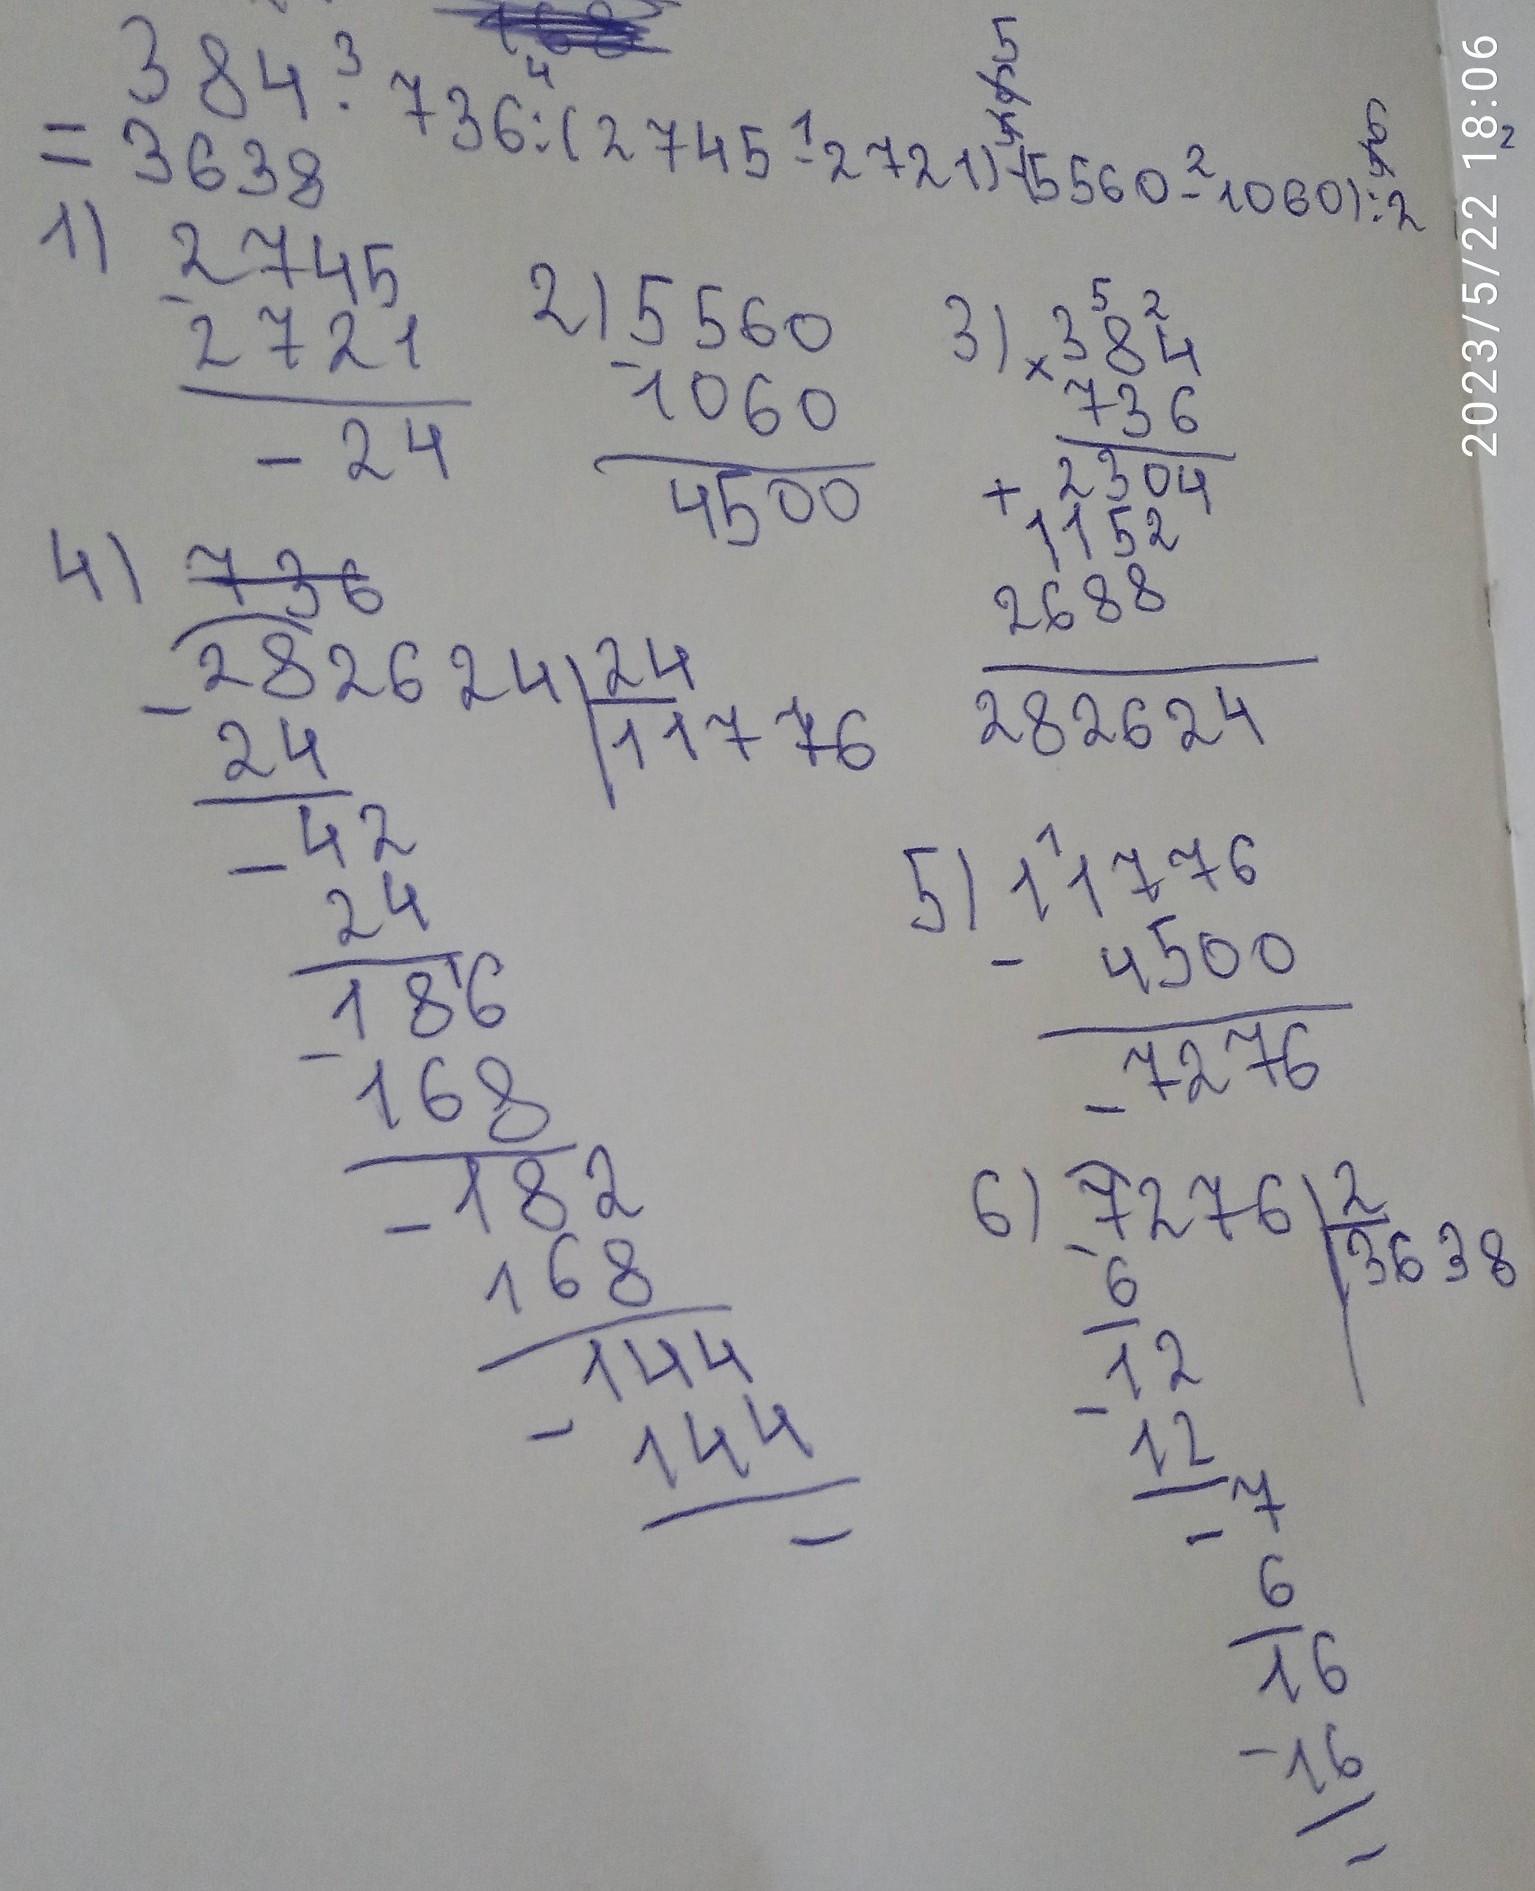 384 · 736 : (2745 - 2721) - (5560 - 1060) : 2
= 3638
1) 2745
- 2721
- 24
2) 5560
- 1060
4500
3) 384
× 736
+ 2304
1152
2688
282624
4) 736
- 282624 | 24
11776
24
- 42
24
186
- 168
- 182
168
- 144
144
-
5) 11776
- 4500
- 7276
6) 7276 | 2
3638
- 6
12
- 12
- 7
6
16
- 16
-
2023/5/22 18:06